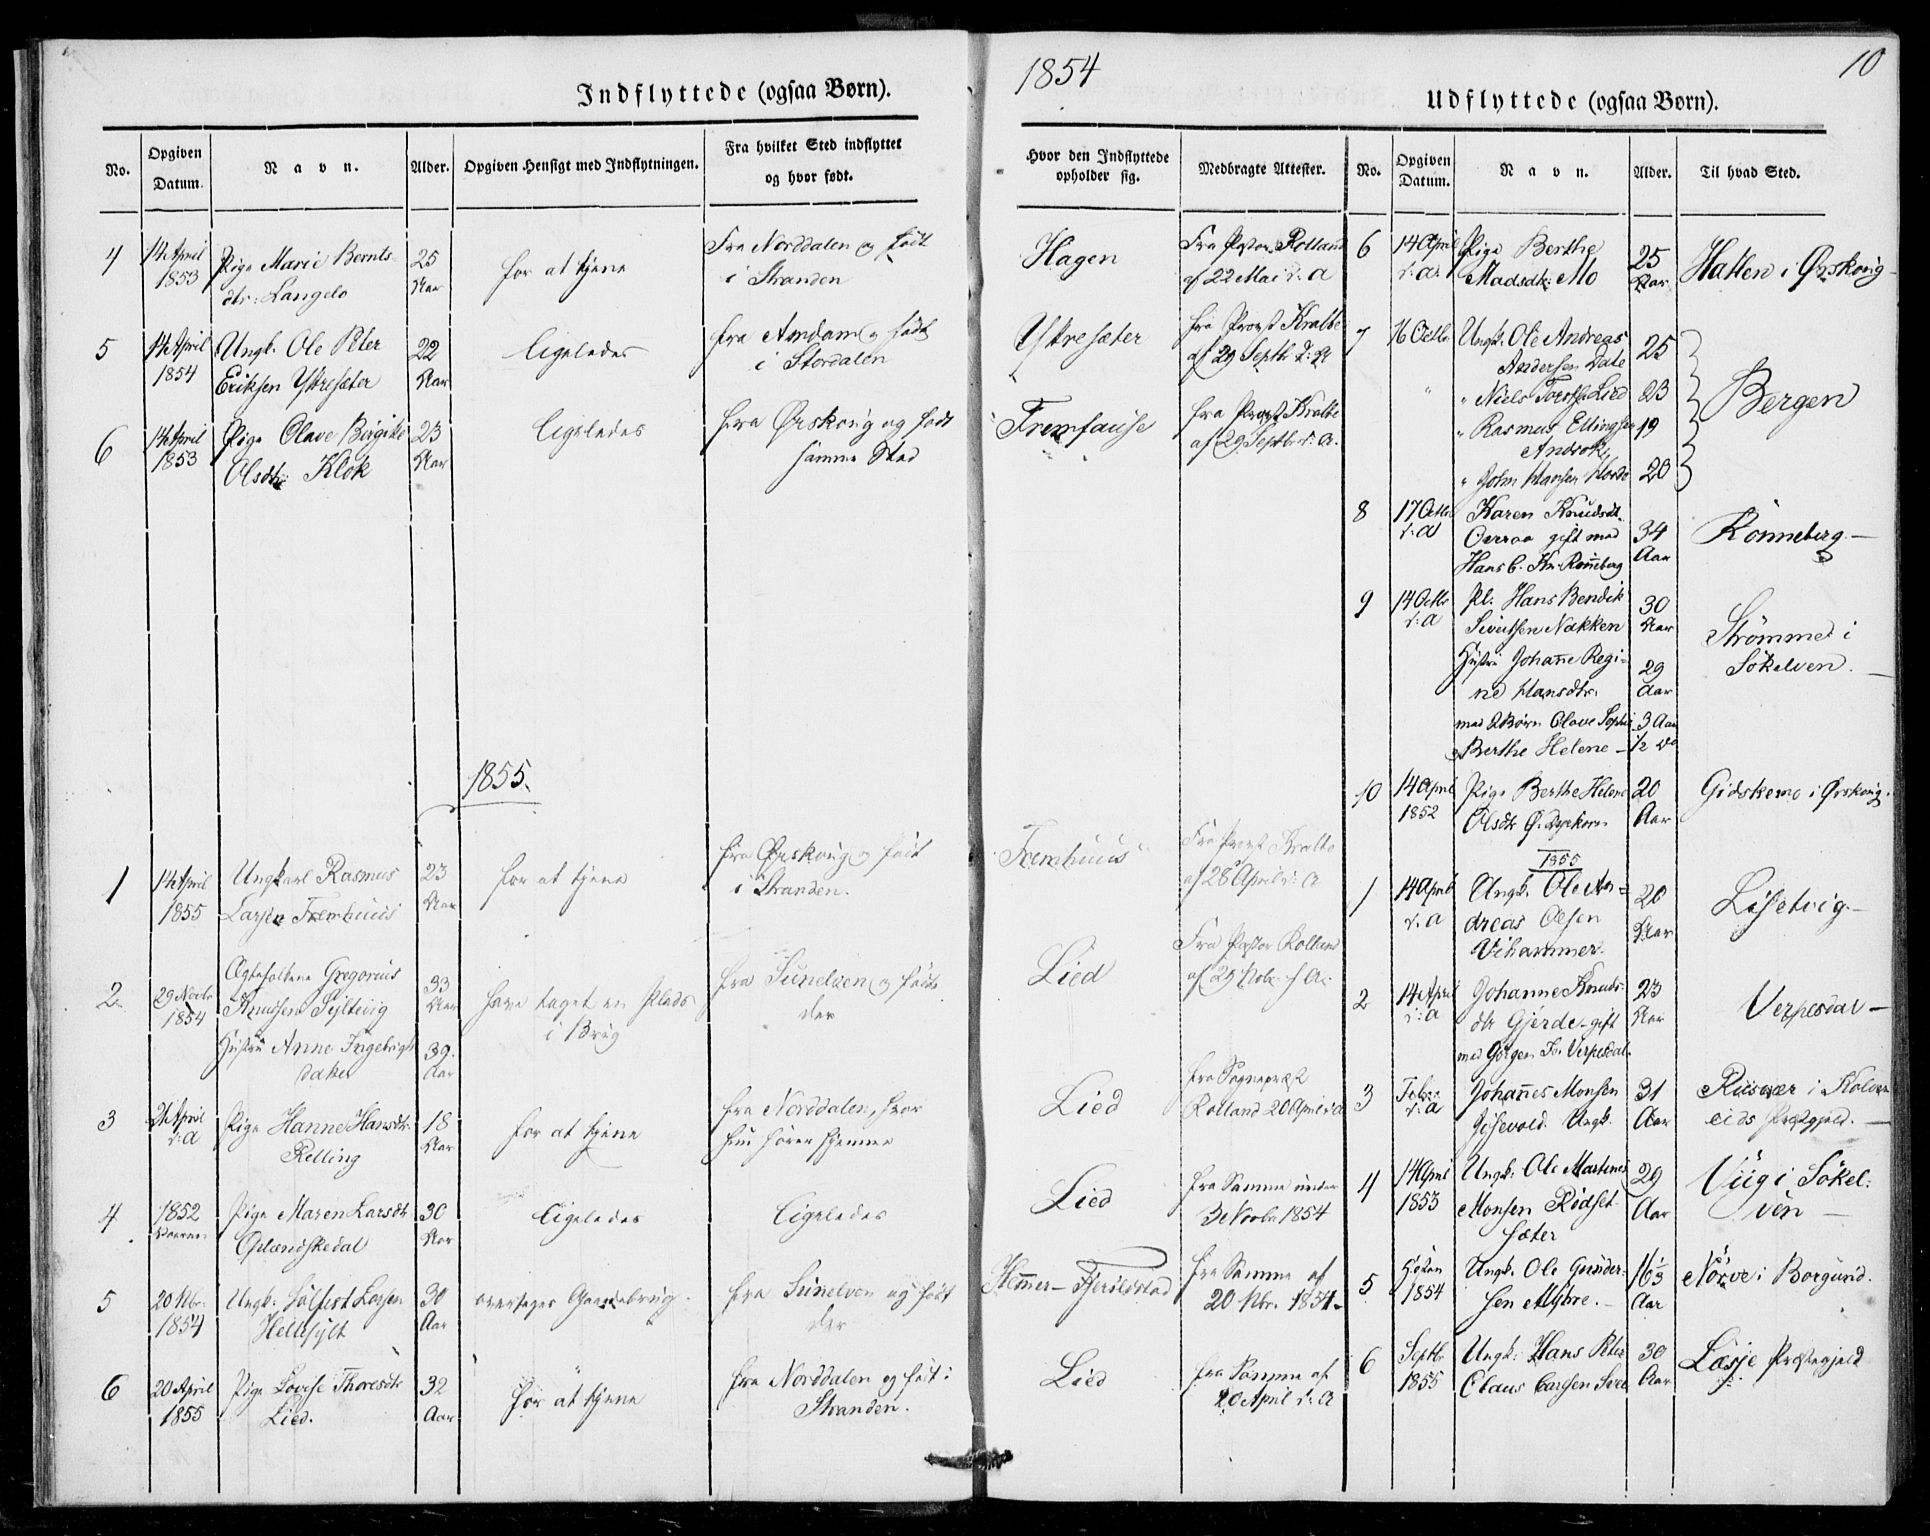 1854
10
Indflyttede (ogsaa Børn).
Udflyttede (ogsaa Børn).
No.
Opgiven Datum.
Navn.
Alder.
Opgiven Hensigt med Indflytningen.
Fra hvilket Sted indflyttet og hvor født.
Hvor den Indflyttede opholder sig.
Medbragte Attester.
No.
Opgiven Datum.
Navn.
Alder.
Til hvad Sted.
4 14 April 1853 Pige Marie Berntsdtr: Langelo 25 Aar for at tjene Fra Norddalen og født i Stranden Hagen Fra Pastor Rolland af 22 Mai d: A
5 14 April 1854 Ungk. Ole Peter Eriksen Ytresæter 22 Aar ligeledes fra Amdam og født i Stordalen Ytresæter fra Provst Krabbe af 29 Septb d: A
6 14 April 1853 Pige Olave Birgitte Olsdtr Klok 23 Aar ligeledes fra Ørskoug og født samme Sted Fremhuse fra Provst Krabbe af 29 Septb d: A.
1855.
1 14 April 1855 Ungkarl Rasmus Larsen Fremhuus 23 Aar for at tjene fra Ørskoug og født i Stranden. Fremhuus Fra Provst Krabbe af 28 April d: A
2 29 Novbr 1854 Ægtefolkene Gregorius Knudsen Syltevig 33 Aar have taget en Plads i Brug fra Sunelven og født der Lied Fra Pastor Rolland af 29 Nobr f A:
Hustru Anne Ingebrigtsdatter 39 Aar
3 21 April d: A Pige Hanne Hansdtr. Relling 18 Aar for at tjene fra Norddalen, hvor hun hører hjemme Lied fra Sognepræst Rolland 20 April d: A
4 1852 Pige Maren Larsdtr Oplændskedal 30 Aar ligeledes Ligeledes Lied fra Samme under 3 Novbr 1854
5 20 Nbr. 1854 Ungk: Sølfest Larsen Hellesylt 30 Aar overtager Gaardebrug. fra Sunelven og født der fra Samme af 20 Nbr. 1854.
6 20 April 1855 Pige Lovise Thoresdtr Lied. 32 Aar for at tjene fra Norddalen og født i Stranden. Lied fra Samme af 20 April d: A
6 14 April d: a. Pige Berthe Madsdtr: Mo 25 Aar Hatlen i Ørskoug
7 16 Octbr Ungk. Ole Andreas Andersen Dale 25 Bergen
" " Niels Lied 23
" Rasmus Ellingsen Andsok 19
" John Hansen 20
8 17 Octbr d: a Karen Knudsdt. Overaa gift med Hans C. Rønneberg 34 Aar Rønneberg
9 14 Octbr d: a Pl. Hans Bendik Sivertsen Nakken 30 Aar Strømmed i Søkelven.
Hustru Johanne Regine Hansdtr. 29 Aar
med 2 Børn Olave Sophie 3 Aar
Berthe Helene 1/2 do
10 14 April 1852 Pige Berthe Helene Olsdtr Ø. Dyrkorn 20 Aar Gidskemo i Ørskoug.
1855
1 14 April d: a Ungk. Ole Andreas Olsen Vihammer. 20 Aar
2 14 April d: a Johanne Knudsdtr Gjerde gift med Gørgen Verpesdal. 23 Aar Verpesdal
3 Febr. d: a Johannes Monsen Gjsevold. Ungk. 31 Aar Riisvær i Kolvereids Præstegjeld.
4 14 April 1853 Ungk: Ole Martinus Monsen Rødsetsæter 29 Aar Viig i Søkelven
5 Høsten 1854 Ungk. Ole Gundersen Myhre. 16 1/3 Aar Nørve i Borgund.
6 Septbr 1855 Ungk: Hans Peter Claus Carlsen 30 Aar Læsje Præstegjeld